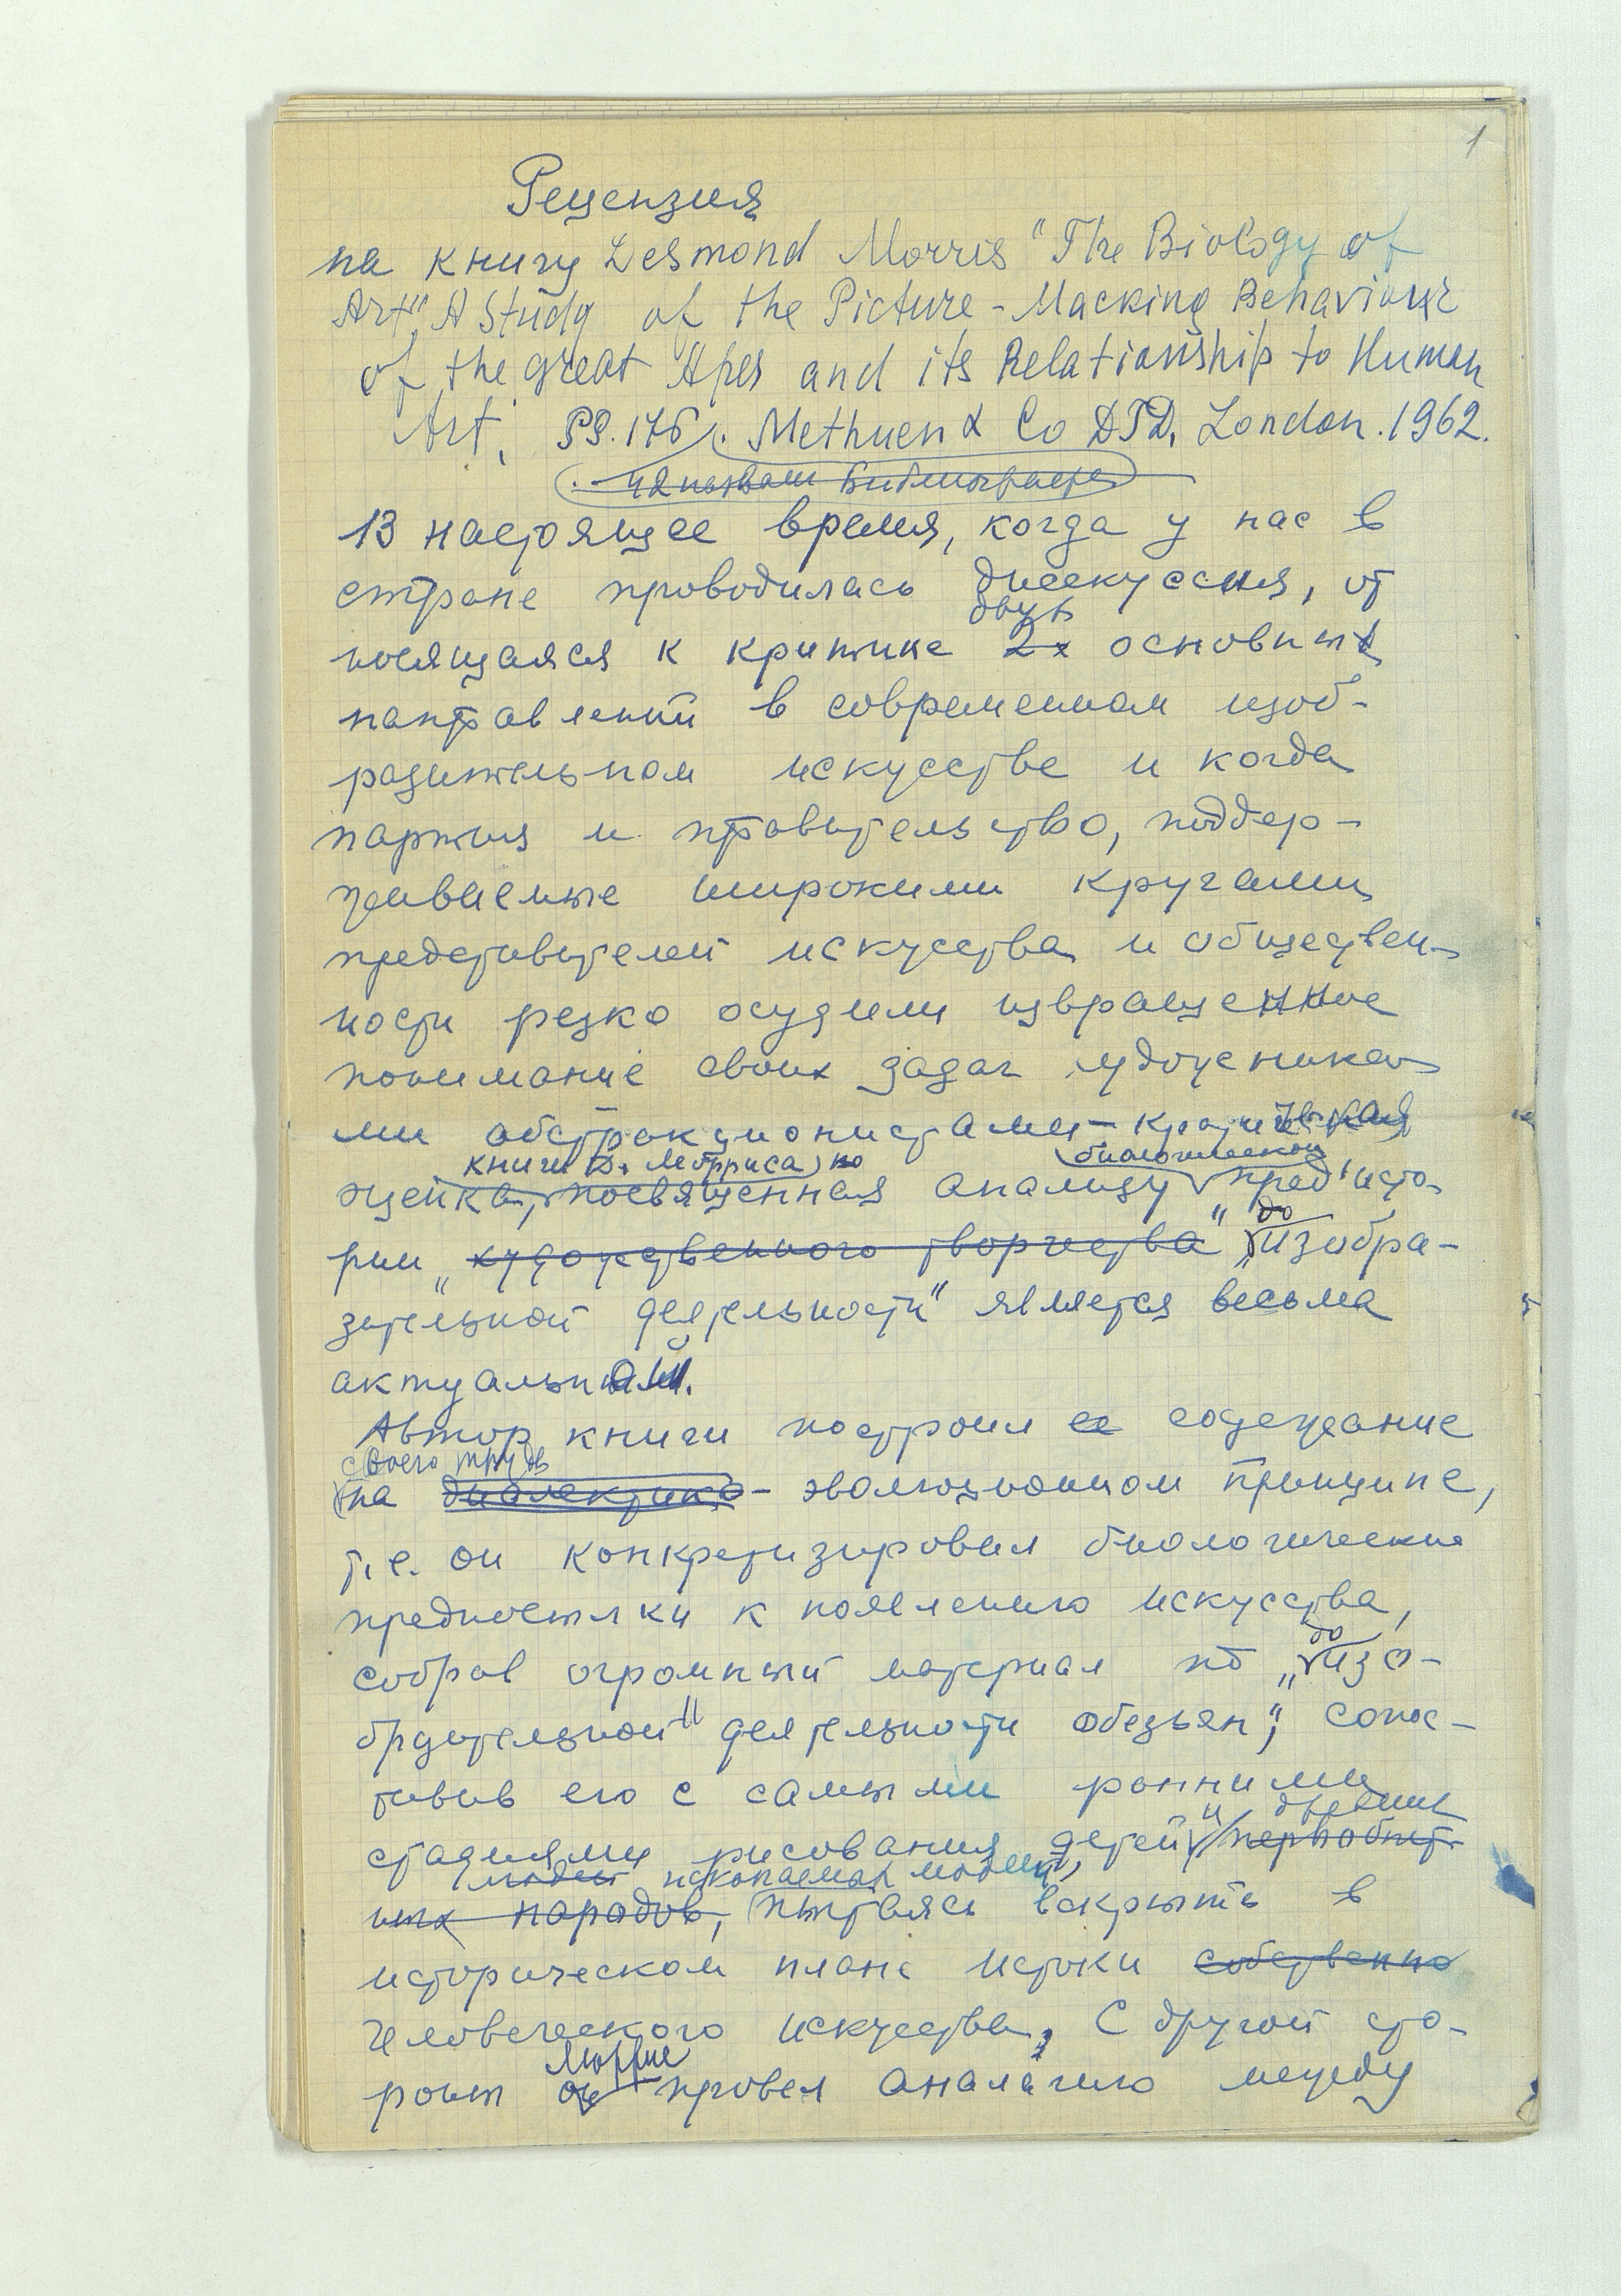 1
Рецензия
на книгу Desmond Morris "The Biology of
Art" A Study of the Picture-Macking Behaviour
of the great Apes and its Relationship to Human
Art, PS. 176. Methuen & Co LTD, London. 1962.
В настоящее время, когда у нас в
стране проводилась дисскуссия, от
двух
носящаяся к критике 2х основных
направлений в современном изоб-
разительном искусстве и когда
партия и правительство, поддер-
живаемые широкими кругами
представителей искусства и обществен-
ности резко осудили извращенное
понимание своих задач художника-
ми абстракционистами – критическая
книги Д. Морриса, биологической
оценка, посвященная анализу предисто-
до
рии „художественного творчества" „изобра-
зительной деятельности" является весьма
актуальной.
Автор книги построил ее содержание
своего труда
на диалектико- эволюционном принципе,
т.е. он конкретизировал биологические
предпосылки к появлению искусства,
до
собрав огромный материал по „изо-
бразительной" деятельности обезьян", сопос-
тавив его с самыми ранними
и древних
стадиями рисования детей первобыт-
ископаемых людей,
ных народов, пытаясь вскрыть в
историческом плане истоки собственно
человеческого искусства. С другой сто-
Моррис
роны он провел аналогию между